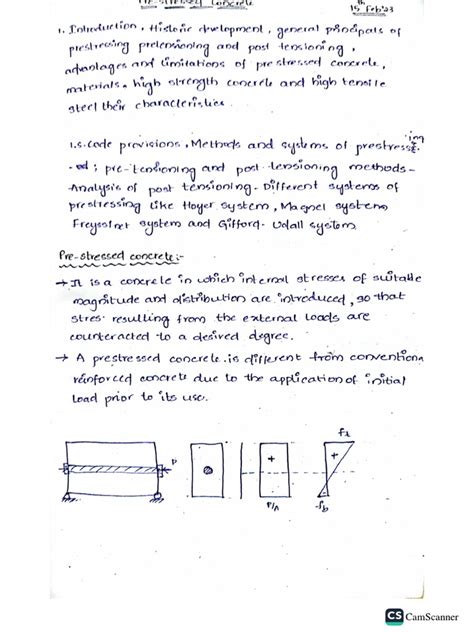 Pre-stressed Concrete
15th Feb'23
1. Introduction, Historic development, general principals of
prestressing pretensioning and post tensioning,
advantages and limitations of prestressed concrete,
materials. high strength concrete and high tensile
steel their characteristics.
I.S. code provisions, Methods and systems of prestressing
-ed ; pre-tensioning and post tensioning methods-
Analysis of post tensioning. Different systems of
prestressing like Hoyer system, Magnel system
Freyssinet system and Gifford-Udall system
Pre-stressed concrete:-
→ It is a concrete in which internal stresses of suitable
magnitude and distribution are introduced, so that
stres. resulting from the external loads are
counteracted to a desired degree.
→ A prestressed concrete is different from conventiona
reinforced concrete due to the application of initial
load prior to its use.
P
+
P/A
+
CS CamScanner